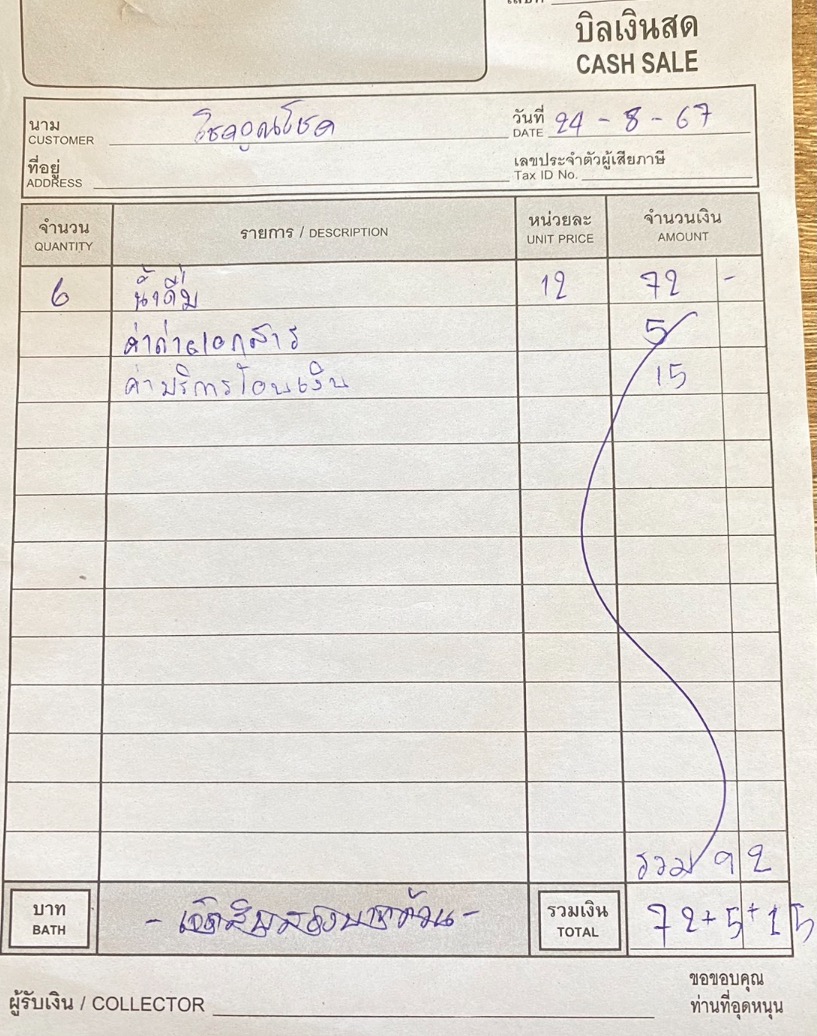 บิลเงินสด
CASH SALE
นาม
CUSTOMER
โชคคูณโชค
วันที่
DATE
24 - 8 - 67
ที่อยู่
ADDRESS
เลขประจำตัวผู้เสียภาษี
Tax ID No.
จำนวน
QUANTITY
รายการ / DESCRIPTION
หน่วยละ
UNIT PRICE
จำนวนเงิน
AMOUNT
6 น้ำดื่ม 12 72 -
ค่าถ่ายเอกสาร 5
ค่าบริการโอนเงิน 15
รวม 92
บาท
BATH
- เจ็ดสิบสองบาทถ้วน -
รวมเงิน
TOTAL
72+5+15
ขอขอบคุณ
ท่านที่อุดหนุน
ผู้รับเงิน / COLLECTOR